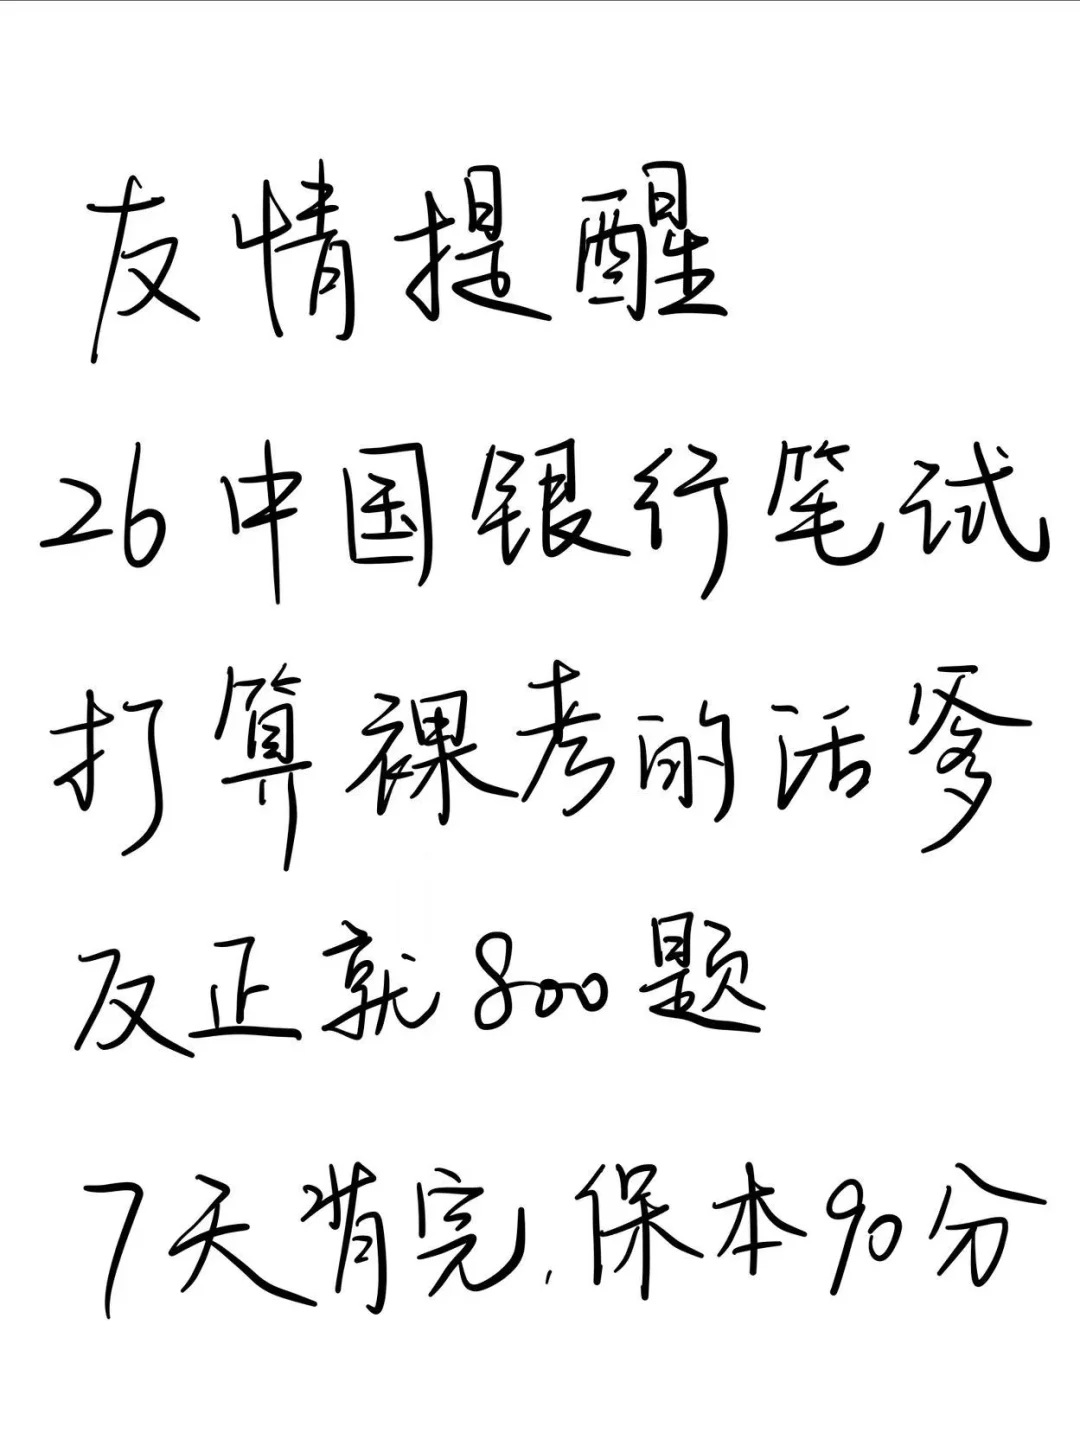 友情提醒
26中国银行笔试
打算裸考的活爹
反正就800题
7天背完,保本90分